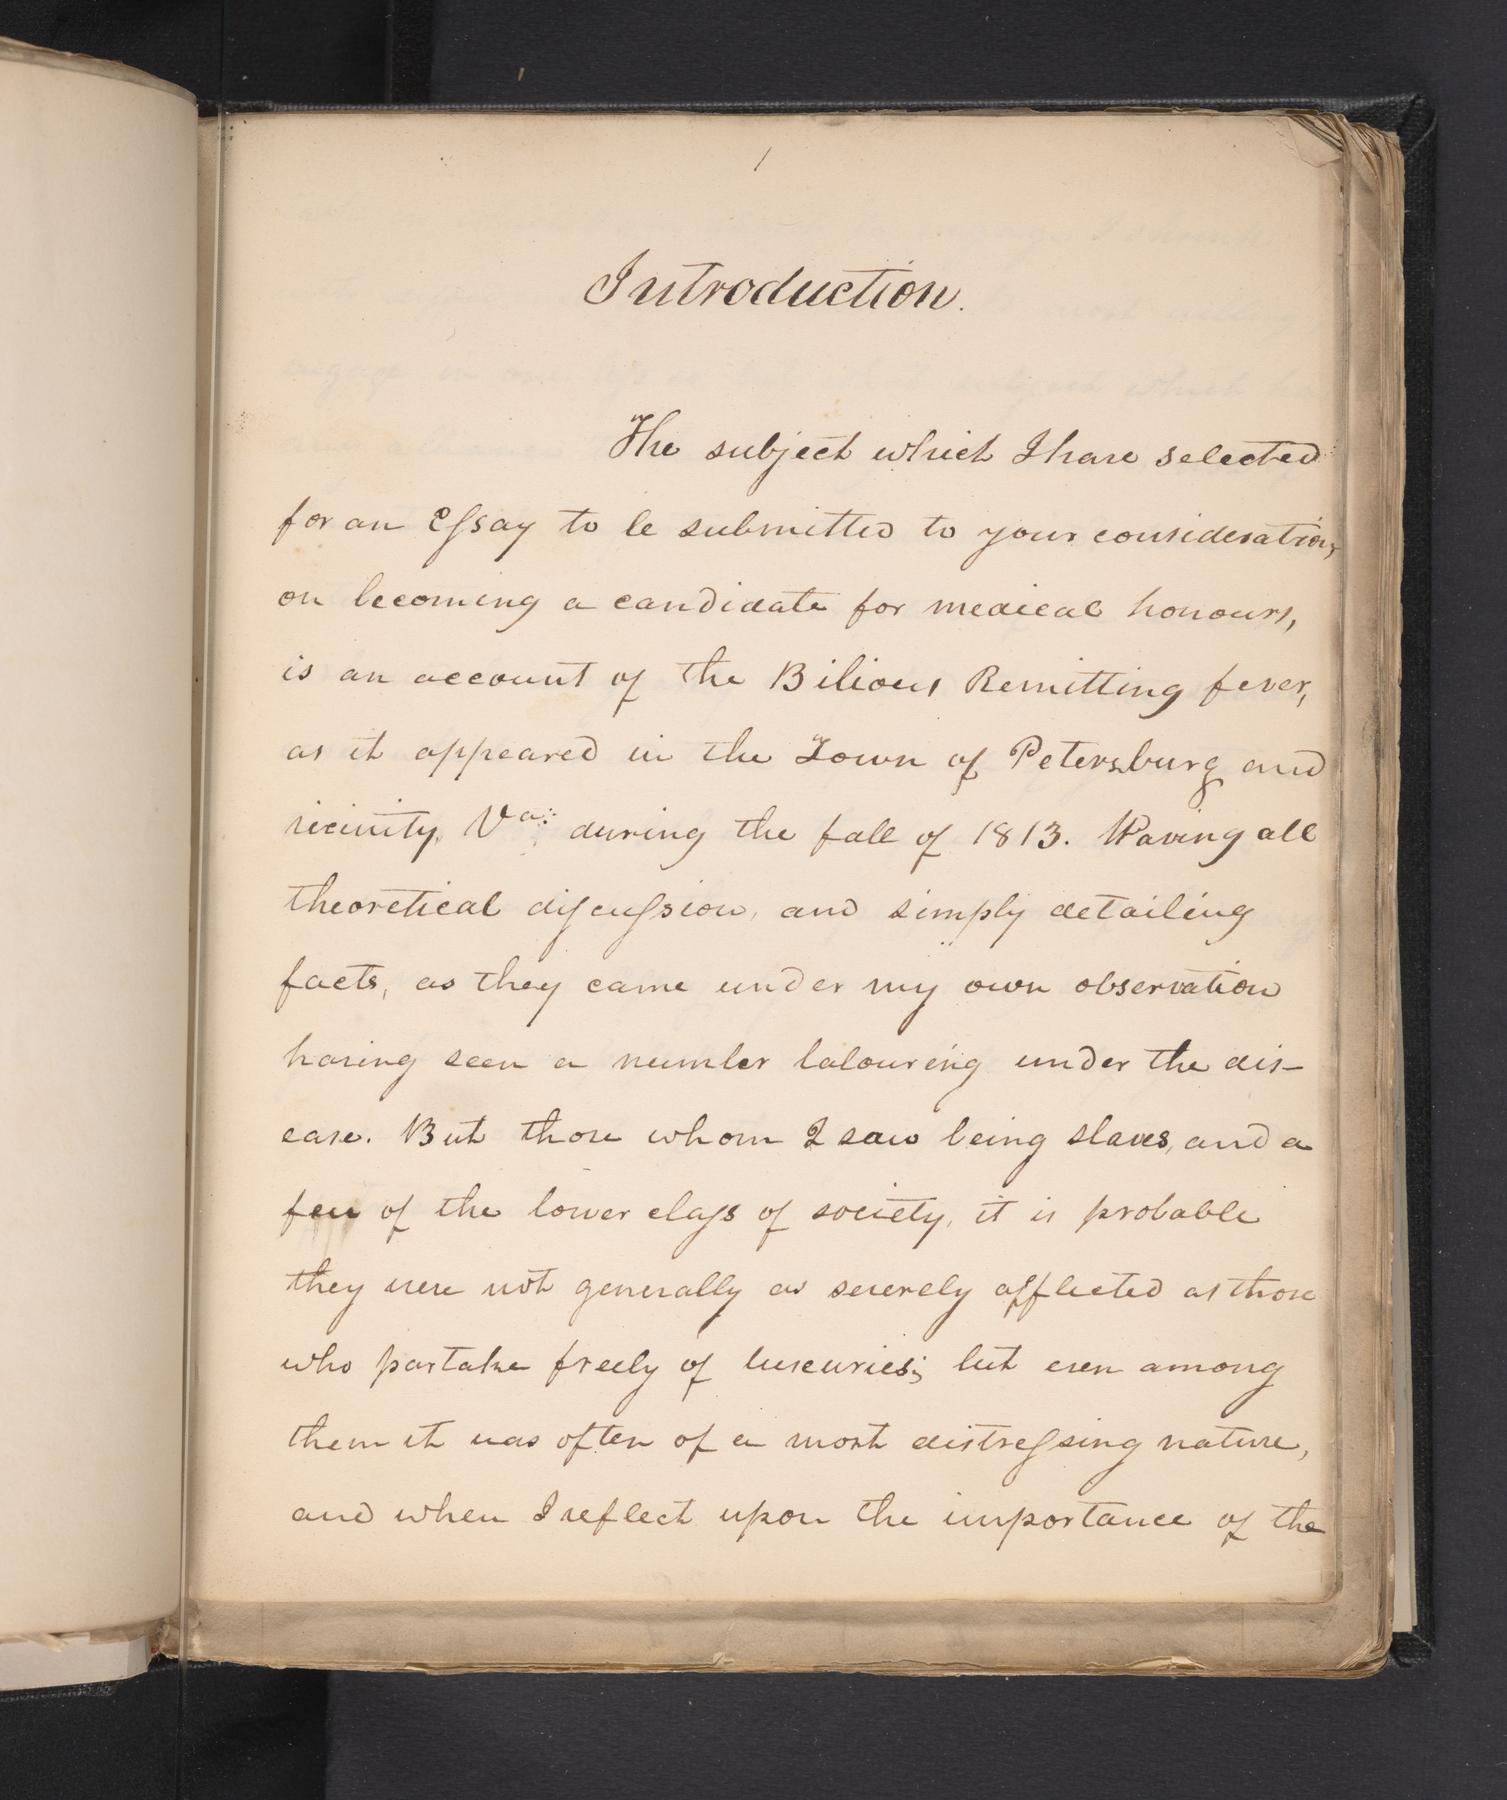 1
Introduction.
The subject which I have selected
for an Essay to be submitted to your consideration,
on becoming a candidate for medical honours,
is an account of the Bilious Remitting fever,
as it appeared in the Town of Petersburg and
vicinity, Va: during the fall of 1813. Waving all
theoretical discussion, and simply detailing
facts, as they came under my own observation
having seen a number labouring under the dis-
ease. But those whom I saw being slaves, and a
few of the lower class of society, it is probable
they were not generally as severely afflicted as those
who partake freely of luxuries; but even among
them it was often of a most distressing nature,
and when I reflect upon the importance of the